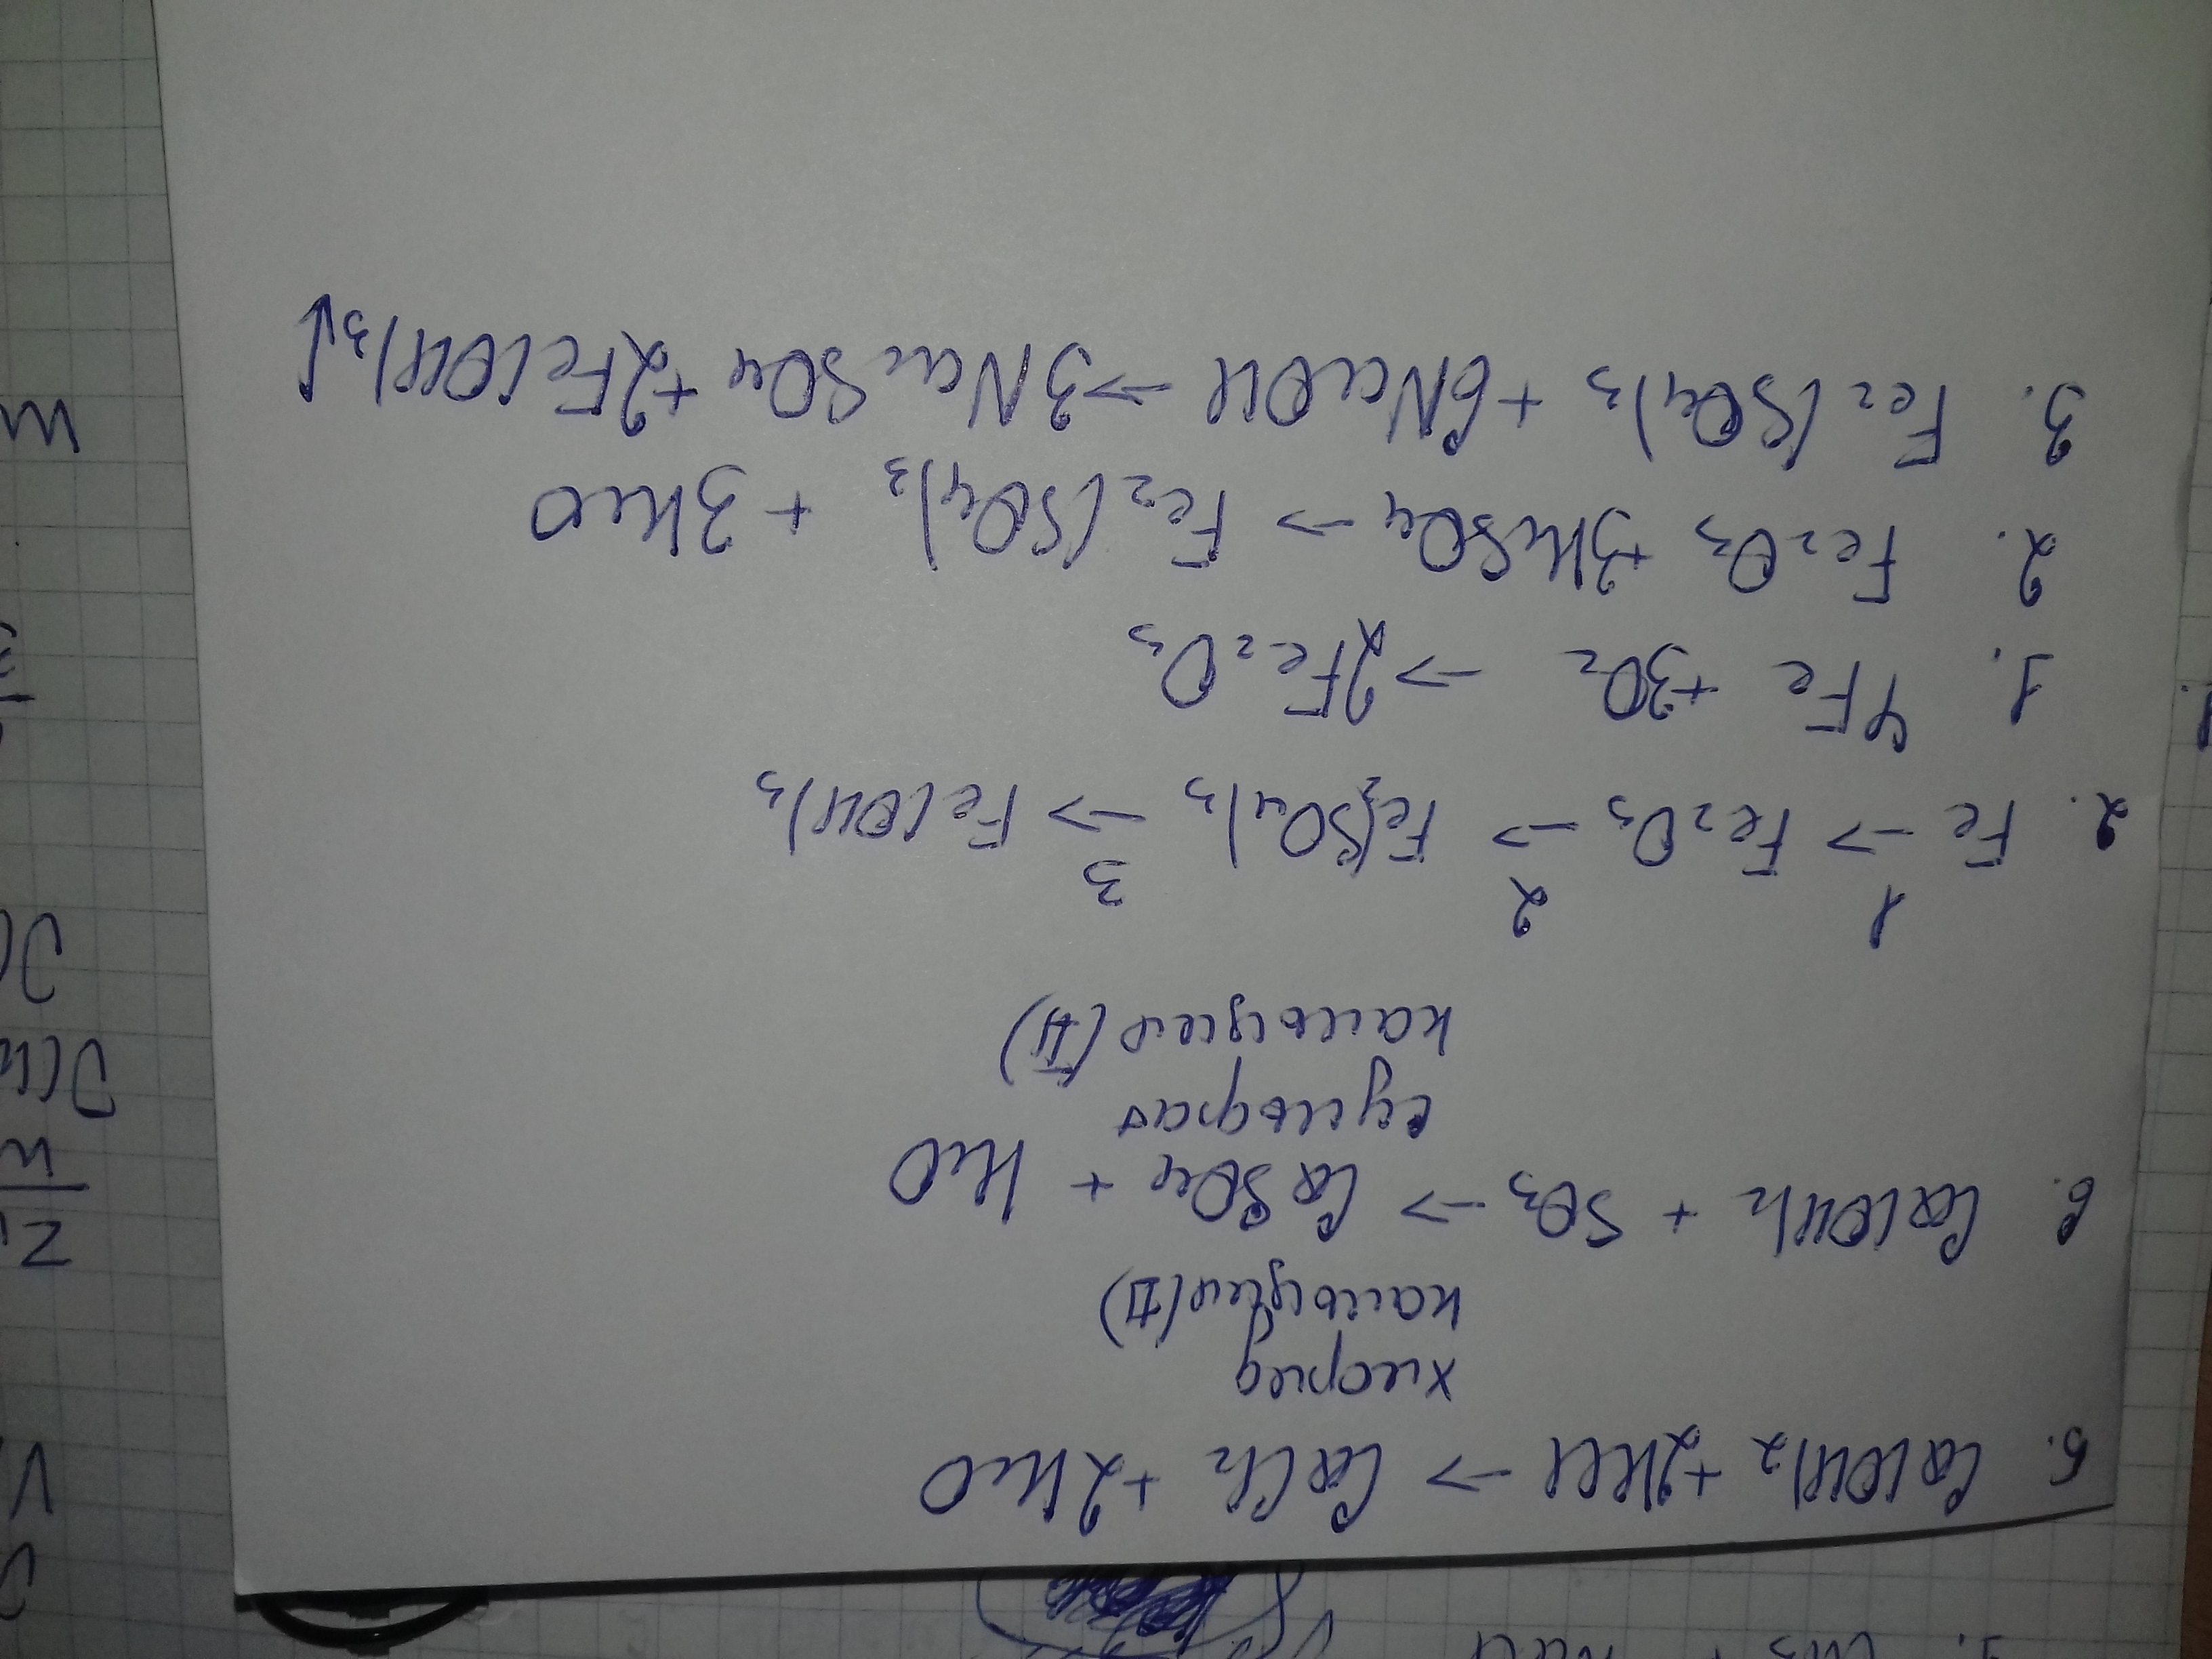 5. Ca(OH)2 + 2HCl → CaCl2 + 2H2O
хлорид
кальция (II)
6. Ca(OH)2 + SO3 → CaSO4 + H2O
сульфат
кальция (II)
1 2 3
2. Fe → Fe2O3 → Fe2(SO4)3 → Fe(OH)3
1. 4Fe + 3O2 → 2Fe2O3
2. Fe2O3 + 3H2SO4 → Fe2(SO4)3 + 3H2O
3. Fe2(SO4)3 + 6NaOH → 3Na2SO4 + 2Fe(OH)3↓